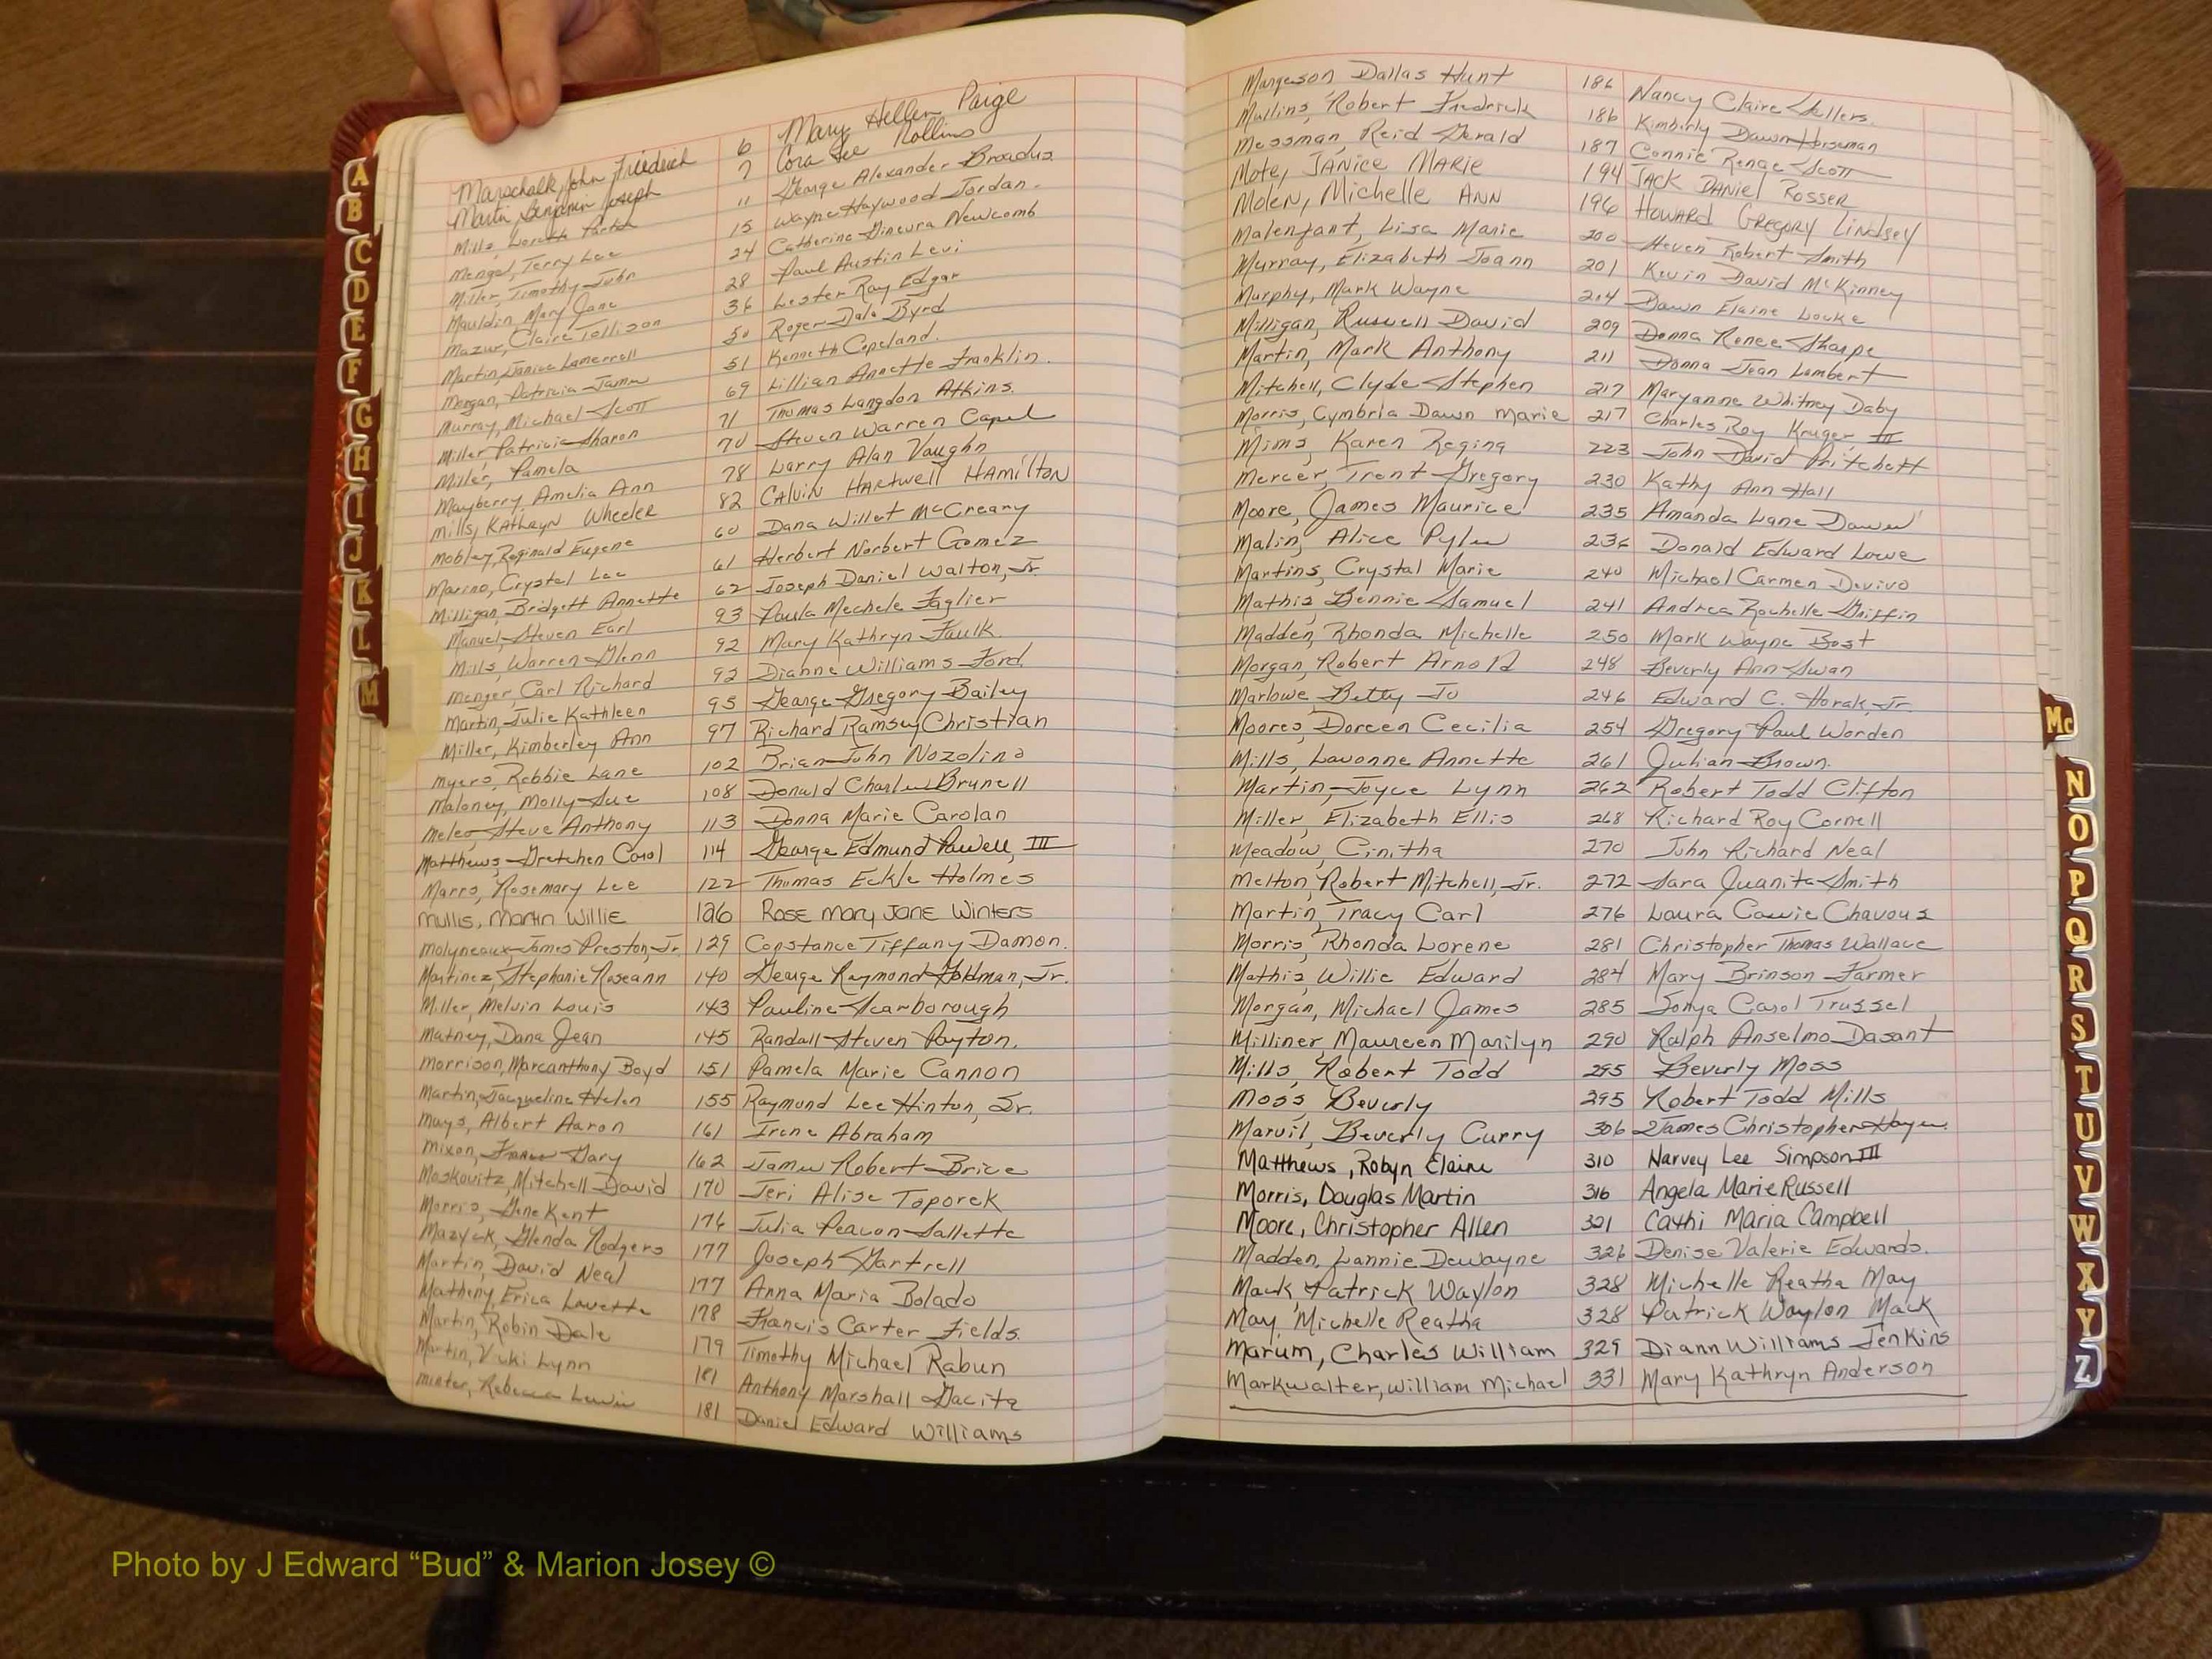 Marschalk, John Friedrich 6 Mary Hellen Paige
Martin Benjamin Joseph 7 Cora Lee Rollins
Mills, Loretta 11 George Alexander Broadus
Mengel, Terry Lee 15 Wayne Haywood Jordan.
Miller, Timothy John 24 Catherine Ginevra Newcomb
Mauldin, Mary Jane 28 Paul Austin Levi
Mazur, Claire Tollison 36 Lester Ray Edgar
Martin, Janice Lamerrell 50 Roger Dale Byrd
Morgan, Patricia 51 Kenneth Copeland.
Murray, Michael Scott 69 Lillian Annette Franklin.
Miller, Patricia Sharon 71 Thomas Langdon Atkins.
Miller, Pamela 70 Steven Warren Capel
Mayberry, Amelia Ann 78 Larry Alan Vaughn
Mills, Kathryn Wheeler 82 Calvin Hartwell Hamilton
Mobley, Reginald Eugene 60 Dana Willet McCreary
Marino, Crystal Lee 61 Herbert Norbert Gomez
Milligan, Bridgett Annette 62 Joseph Daniel Walton, Jr.
Manuel, Steven Earl 93 Paula Mechele Faglier
Mills, Warren Glenn 92 Mary Kathryn Faulk.
Menger, Carl Richard 92 Dianne Williams Ford
Martin, Julie Kathleen 95 George Gregory Bailey
Miller, Kimberley Ann 97 Richard Ramsey Christian
Myers, Robbie Lane 102 Brian John Nozolino
Maloney, Molly Sue 108 Donald Charles Brunell
Meleo, Steve Anthony 113 Donna Marie Carolan
Matthews, Gretchen Carol 114 George Edmund Powell, III
Marrs, Rosemary Lee 122 Thomas Eckle Holmes
Mullis, Martin Willie 126 Rose Mary Jane Winters
Molyneaux, James Preston, Jr. 129 Constance Tiffany Damon.
Martinez, Stephanie Roseann 140 George Raymond Goldman, Jr.
Miller, Melvin Louis 143 Pauline Scarborough
Matney, Dana Jean 145 Randall Steven Payton.
Morrison, Marcanthony Boyd 151 Pamela Marie Cannon
Martin, Jacqueline Helen 155 Raymond Lee Hinton, Sr.
Mays, Albert Aaron 161 Irene Abraham
Mixon, Gary 162 James Robert Brice
Moskovitz, Mitchell David 170 Jeri Alise Toporek
Morris, Gene Kent 176 Julia Peacon Sallette
Mazyck, Glenda Rodgers 177 Joseph Gartrell
Martin, David Neal 177 Anna Maria Bolado
Matheny, Erica Lavette 178 Francis Carter Fields.
Martin, Robin Dale 179 Timothy Michael Rabun
Martin, Vicki Lynn 181 Anthony Marshall Gacita
Minter, Rebecca 181 Daniel Edward Williams
Margeson Dallas Hunt 186 Nancy Claire Sellers.
Mullins, Robert Fredrick 186 Kimberly Dawn Horseman
Messman, Reid Gerald 187 Connie Renae Scott
Mote, Janice Marie 194 Jack Daniel Rosser
Molen, Michelle Ann 196 Howard Gregory Lindsey
Malenfant, Lisa Marie 200 Steven Robert Smith
Murray, Elizabeth Joann 201 Kevin David McKinney
Murphy, Mark Wayne 204 Dawn Elaine Locke
Milligan, Russell David 209 Donna Renee Sharpe
Martin, Mark Anthony 211 Donna Jean Lambert
Mitchell, Clyde Stephen 217 Maryanne Whitney Daby
Morris, Cymbria Dawn Marie 217 Charles Roy Kruger III
Mims, Karen Regina 223 John David Pritchett
Mercer, Trent Gregory 230 Kathy Ann Hall
Moore, James Maurice 235 Amanda Lane
Malin, Alice Pyles 236 Donald Edward Lowe
Martins, Crystal Marie 240 Michael Carmen Devivo
Mathis Bennie Samuel 241 Andrea Rochelle Griffin
Madden, Rhonda Michelle 250 Mark Wayne Bost
Morgan, Robert Arnold 248 Beverly Ann Swan
Marlowe, Betty Jo 246 Edward C. Horak, Jr.
Moores, Doreen Cecilia 254 Gregory Paul Worden
Mills, Lavonne Annette 261 Julian Brown.
Martin, Joyce Lynn 262 Robert Todd Clifton
Miller, Elizabeth Ellis 268 Richard Roy Cornell
Meadow, Cinitha 270 John Richard Neal
Melton, Robert Mitchell, Jr. 272 Sara Juanita Smith
Martin, Tracy Carl 276 Laura Chavous
Morris, Rhonda Lorene 281 Christopher Thomas Wallace
Mathis, Willie Edward 284 Mary Brinson Farmer
Morgan, Michael James 285 Sonya Carol Trussel
Milliner, Maureen Marilyn 290 Ralph Anselmo Dasant
Mills, Robert Todd 295 Beverly Moss
Moss, Beverly 295 Robert Todd Mills
Marvil, Beverly Curry 306 James Christopher
Matthews, Robyn Elaine 310 Harvey Lee Simpson III
Morris, Douglas Martin 316 Angela Marie Russell
Moore, Christopher Allen 321 Cathi Maria Campbell
Madden, Lannie Dewayne 326 Denise Valerie Edwards.
Mack, Patrick Waylon 328 Michelle Reatha May
May, Michelle Reatha 328 Patrick Waylon Mack
Marum, Charles William 329 Diann Williams Jenkins
Markwalter, William Michael 331 Mary Kathryn Anderson
A
B
C
D
E
F
G
H
I
J
K
L
M
Mc
N
O
P
Q
R
S
T
U
V
W
X
Y
Z
Photo by J Edward “Bud” & Marion Josey ©